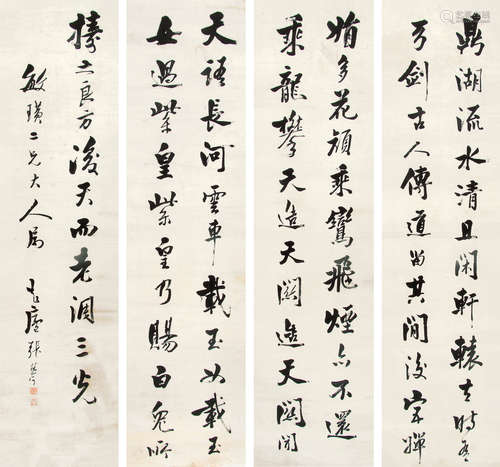 鼎湖流水清且閑軒轅去時有
弓劍古人傳道留其間後宮嬋
娟多花顔乘鸞飛煙亦不還
乘龍攀天造天關造天關聞
天語長河雲車載玉女載玉
女過紫皇紫皇乃賜白兔所
擣之良方後天而老凋三光
敏璜二兄大人屬 張謇